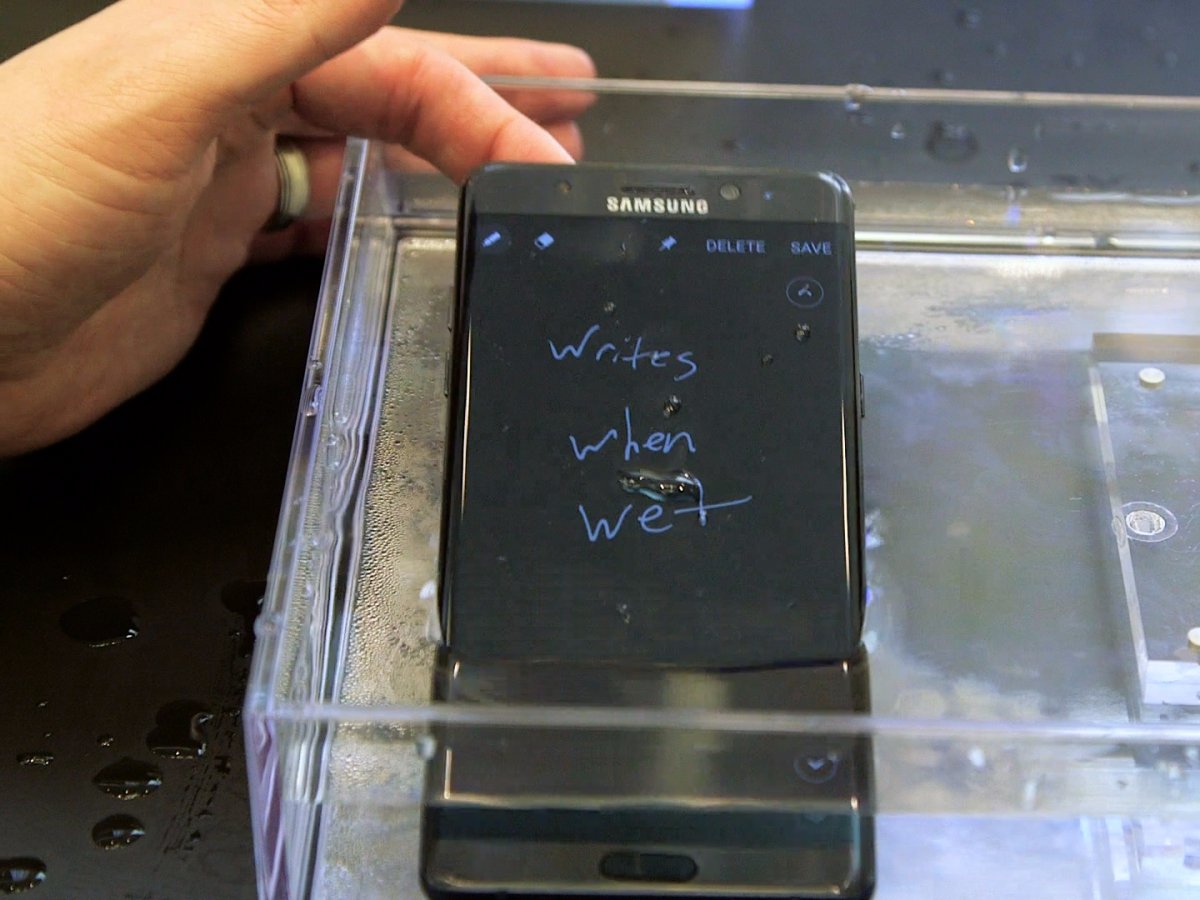 SAMSUNG
DELETE SAVE
Writes
when
wet